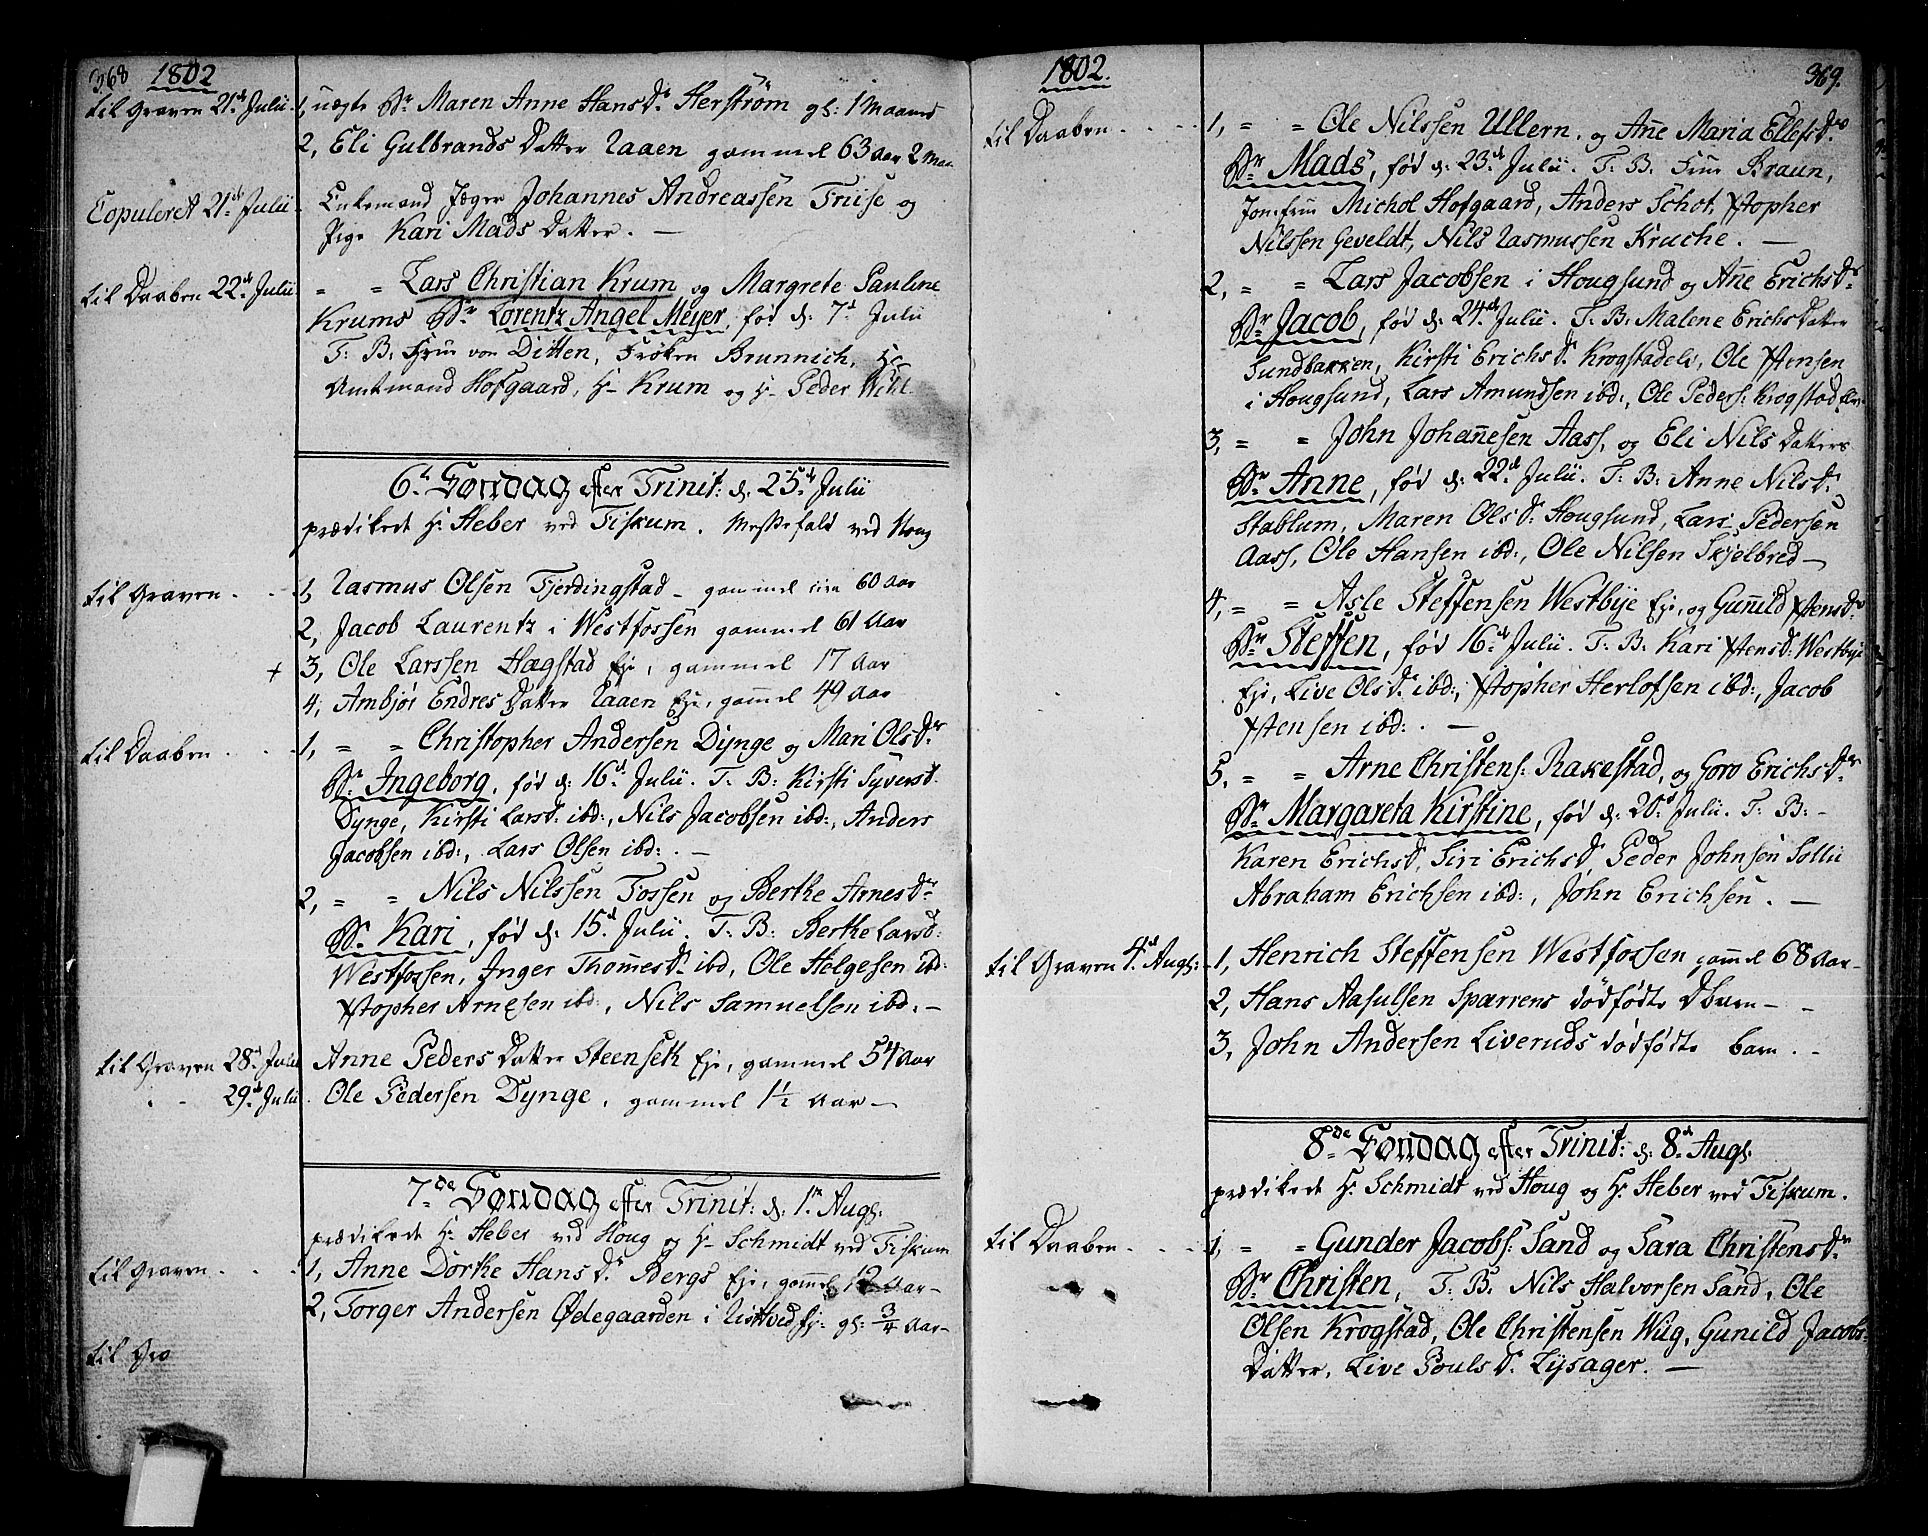 368 1802
til Graven 21d Julii. 1, uægte Br Maren Anne Hansdr Herstrøm gl: 1 Maaned
2, Eli Gulbrands Datter Raaen gammel 63 Aar 2 Mar.
Copuleret 21d Julii. Enkemand Jæger Johannes Andreassen Friise og
Pige Kari Mads Datter. —
til Daaben 22d Julii = = Lars Christian Krum og Margrete Pauline
Krums Br Lorentz Angel Meyer, fød d. 7d Julii
T: B: Frue von Ditten, Frøken Brunnich, Hr
Amtmand Hofgaard, Hr Krum og Hr Peder
6te Søndag efter Trinit: d: 25d Julii
prædikede Hr Heber ved Fiskum. Messefald ved Houg
til Graven . . 1, Rasmus Olsen Fjerdingstad - gammel 60 Aar
2, Jacob Laurentz i Westfossen gammel 61 Aar
+ 3, Ole Larssen Hægstad Eje, gammel 17 Aar
4, Ambjør Endres Datter Raaen Eje, gam̄el 49 Aar
til Daaben . . . 1, = = Christopher Andersen Dynge og Mari Olsdr
Br Ingeborg, fød d: 16d Julii. T: B: Kirsti Syversd.
Dynge, Kirsti Larsd: ibd:, Nils Jacobsen ibd:, Anders
Jacobsen ibd:, Lars Olsen ibd: . —
2, = = Nils Nilssen Fossen og Berthe Arnesdr
Br. Kari, fød d: 15d Julii. T: B: Berthe Larsd:
Westfossen, Inger Thom̄esdr ibd, Ole Helgesen ibd:
Xstopher Arnesen ibd:, Nils Samuelsen ibd: —
til Graven 28d Julii Anne Peders Datter Steenseth Eje, gammel 54 Aar
. - 29d Julii. Ole Pedersen Dynge, gammel 1½ Aar —
7de Søndag efter Trinit: d: 1te Aug:
prædikede Hr Heber ved Houg og Hr Schmidt ved Fiskum
til Graven . . . 1, Anne Dorthe Hansdr Bergs Eje, gam̄el 12 Aar —
2, Torger Andersen Ødegaarden i Ej: gl: ¾ Aar —
til Gra
1802. 369.
til Daaben . . . 1, = = Ole Nilssen Ullern, og An̄e Maria Ellefsdr
Br Mads, fød d: 23d Julii. T. B. Frue Braun,
Jomfrue Michol Hofgaard, Anders Schot, Xstopher
Nilssen Geveldt, Nils Rasmussen Kruche. —
2, = = Lars Jacobsen i Hougsund og An̄e Erichsdr
Br Jacob, fød d: 24d Julii. T: B: Malene Erichs Datter
Sundbakken, Kirsti Erichsd. Krogstadelv, Ole Xstensen
i Hougsund, Lars Amundsen ibd:, Ole Peders: Krogstadelv.
3, = = John Johan̄esen Aass, og Eli Nils Datters
Br Anne, fød d: 22d Julii. T: B: Anne Nilsdr
Stablum, Maren Olsd: Hougsund, Lars Pedersen
Aass, Ole Hansen ibd:, Ole Nilsen Skjelbred —
4, = = Asle Steffensen Westbye Eje, og Gun̄ild Xstensdr
Br Steffen, fød 16d Julii. T. B. Kari Xstensd: Westbye
Eje, Live Olsdr ibd:, Xstopher Herlofsen ibd:, Jacob
Xstensen ibd: . —
5, = = Arne Christens: Rakestad, og Goro Erichsdr
Br Margareta Kirstine, fød d: 20d Julii. T: B: —
Karen Erichsd, Siri Erichsd Peder Johnsen Sollii
Abraham Erichsen ibd:, John Erichsen. —
til Graven 4d Aug: 1, Henrich Steffensen Westfossen gam̄el 68 Aar —
2, Hans Aasulsen Sparrens dødfødte Dbarn — -
3, John Andersen Liveruds dødfødte barn . -
8de Søndag efter Trinit: d: 8d Aug:
prædikede Hr Schmidt ved Houg og Hr Heber ved Fiskum.
til Daaben . . . 1, = = Gunder Jacobs: Sand og Sara Christensdr
Br Christen, T. B. Nils Halvorsen Sand, Ole
Olsen Krogstad, Ole Christensen Wiig, Gunild Jacobs
Datter, Live Poulsd. Lysager. —